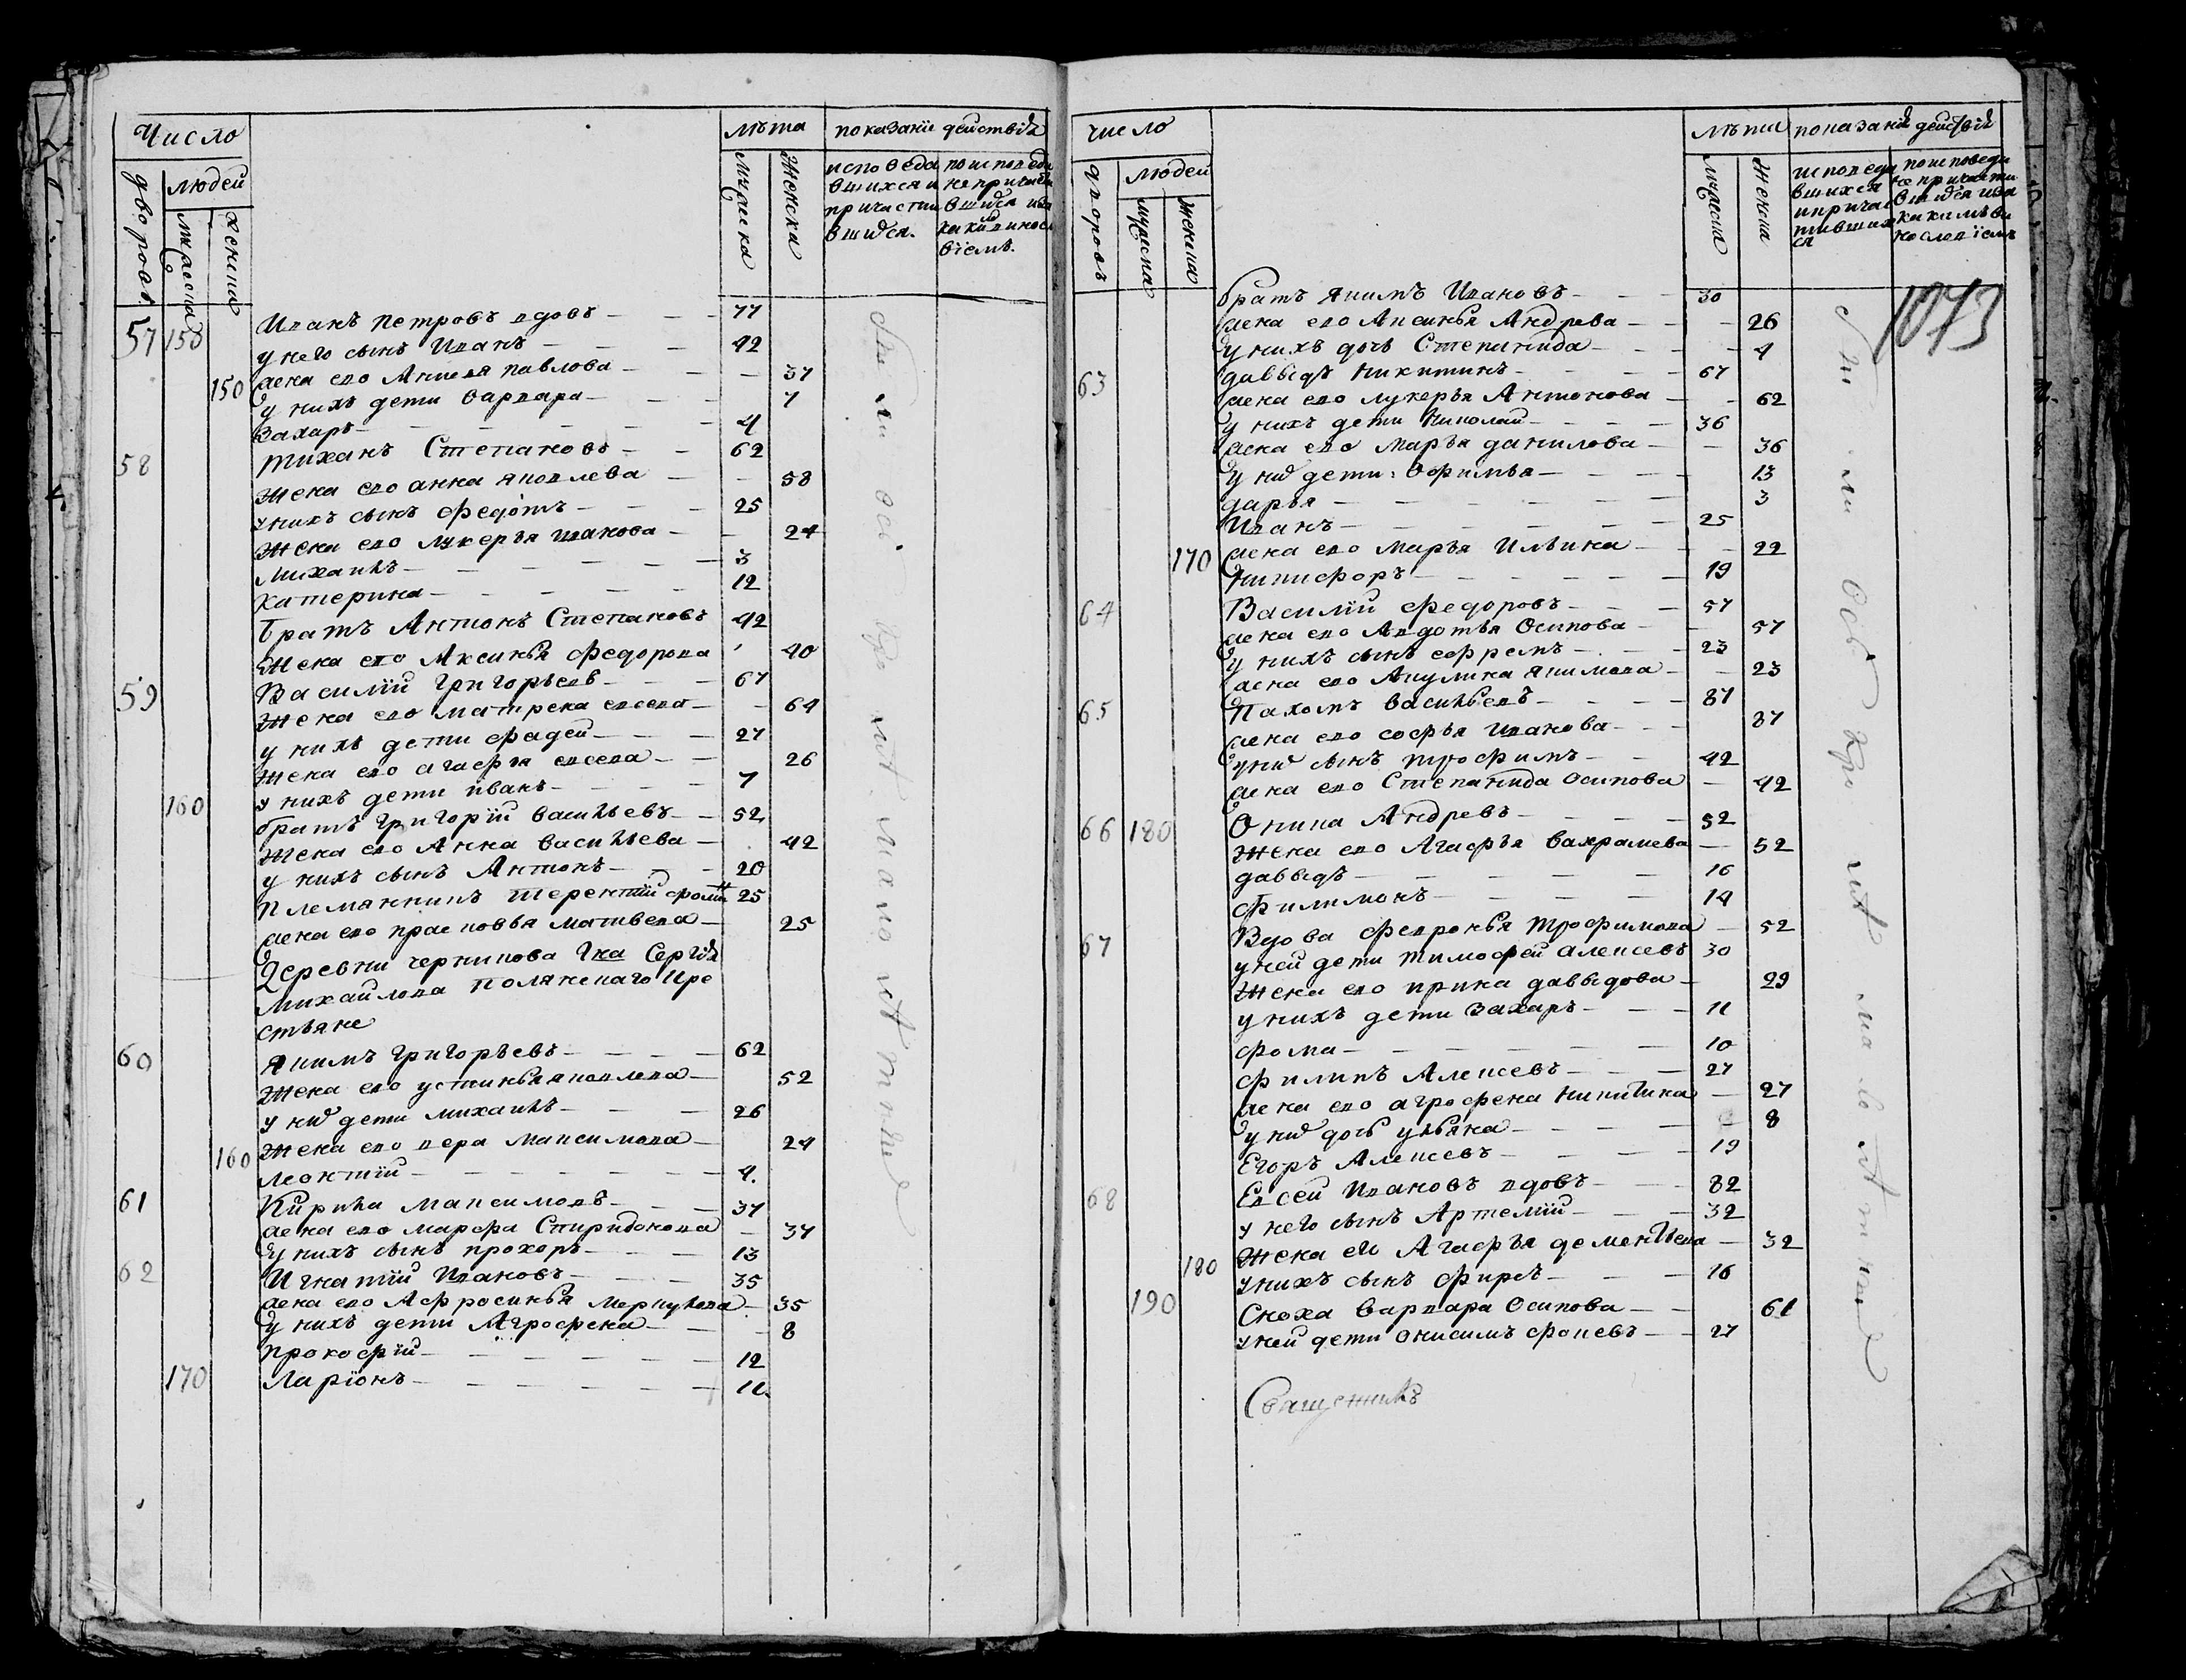 Число
людей
дворовъ
мужска
женска
лѣта
мужска
женска
показаніи действія
исповеда
вшихся и
причасти
вшихся.
по исповеди
не причасти
вшихся
57 150 Иванъ Петровъ вдовъ — — — 77
у него сынъ Иванъ — — — 42
150 жена ево Павлова — — — 37
у нихъ дети Варвара — — — 7
Захаръ — — — 4
58 Тиханъ Степановъ — — 62
Жена ево Анна Яковлева — — 58
у нихъ сынъ Федотъ — — — 25
Жена ево Лукерья Иванова — — 24
Михаилъ — — — 3
Катерина — — — 12
братъ Антонъ Степановъ 42
Жена ево Аксинья Федорова 40
59 Василий Григорьевъ — — — 67
Жена ево Матрена Евсева — — 64
у нихъ дети Фадей — — — 27
Жена ево Агафья Евсева — — 26
160 у нихъ дети Иванъ — — — 7
братъ Григорій Васильевъ — — 52
Жена ево Анна Васильева — 42
у нихъ сынъ Антонъ — — 20
Племянникъ Терентій 25
жена ево Прасковья Матвева — 25
Деревни Черникова Гна Сергія
Михайлова Полянскаго Кре
стьяне
60 Якимъ Григорьевъ — — — 62
Жена ево Устинья Яковлева — 52
у них дети Михаилъ — — — 26
160 Жена ево Вера Максимова — 24
Леонтій — — — 4.
61 Кирила Максимовъ — — 37
жена ево Марфа Спиридонова — 37
у нихъ сынъ Прохоръ — — — 13
62 Игнатій Ивановъ — — — 35
жена ево Афросинья Меркулова — 35
у нихъ дети Агрофена — — — 8
Прокофій — — — 12
170 Ларіонъ — — — 11
число
людей
дворовъ
мужска
женска
лѣта
мужска
женска
показанія действія
исповеда
вшихся
и прича
стивших
ся
по исповеди
не причасти
вшихся
1073
братъ Якимъ Ивановъ — — — 30
жена ево Аксинья Андрева — — 26
у нихъ дочь Степанида — — — 4
63 Давыдъ Никитинъ — — — 67
жена ево Лукерья Антонова — — 62
у нихъ дети Николай — — — 36
жена ево Марья Данилова — — 36
у них дети: Офимья — — — 13
Дарья — — — 3
Иванъ — — — 25
170 жена ево Марья Ильина — — 22
Никифоръ — — — 19
64 Василій Федоровъ — — — 57
жена ево Авдотья Осипова — — 57
у нихъ сынъ Ефремъ — — — 23
жена ево Акулина Якимова — — 23
65 Пахомъ Васильевъ — — — 87
жена ево Софья Иванова — — — 87
у них сынъ Трофимъ — — 42
жена ево Степанида Осипова — 42
66 180 Оника Андревъ — — — 52
Жена ево Агафья Вахрамева — 52
Давыдъ — — — 16
Филимонъ — — — 14
67 Вдова Февронья Трофимова — 52
у ней дети Тимофей Алексевъ 30
Жена ево Ирина Давыдова — 29
у нихъ дети Захаръ — — — 11
Фома — — — 10
Филипъ Алексевъ — — — 27
жена ево Агрофена Никитина — 27
у них дочь Ульяна — — — 8
Егоръ Алексевъ — — — 19
68 Евсей Ивановъ вдовъ — — — 82
у него сынъ Артемій — — — 32
Жена ево Агафья Дементьева — 32
180 у нихъ сынъ Фирсъ — — — 16
190 Сноха Варвара Осипова — — 61
у ней дети Онисимъ — — 27
Священникъ